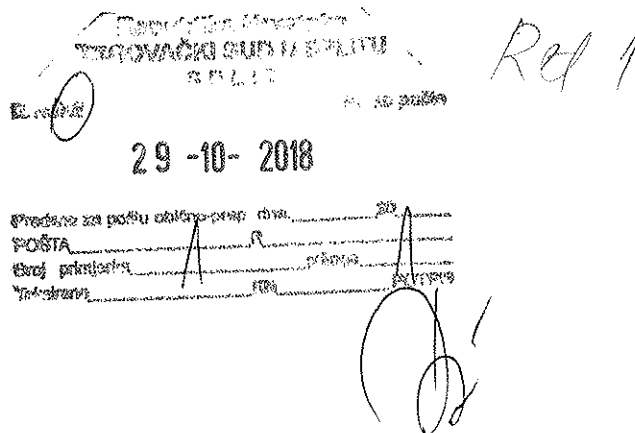 Republika Hrvatska
TRGOVAČKI SUD U SPLITU
SPLIT
Red 1
pošte
29 -10- 2018
Predano za poštu obično-prep. dna 20
POŠTA R
Broj primjeraka priloga
Taksirano KN POTPIS